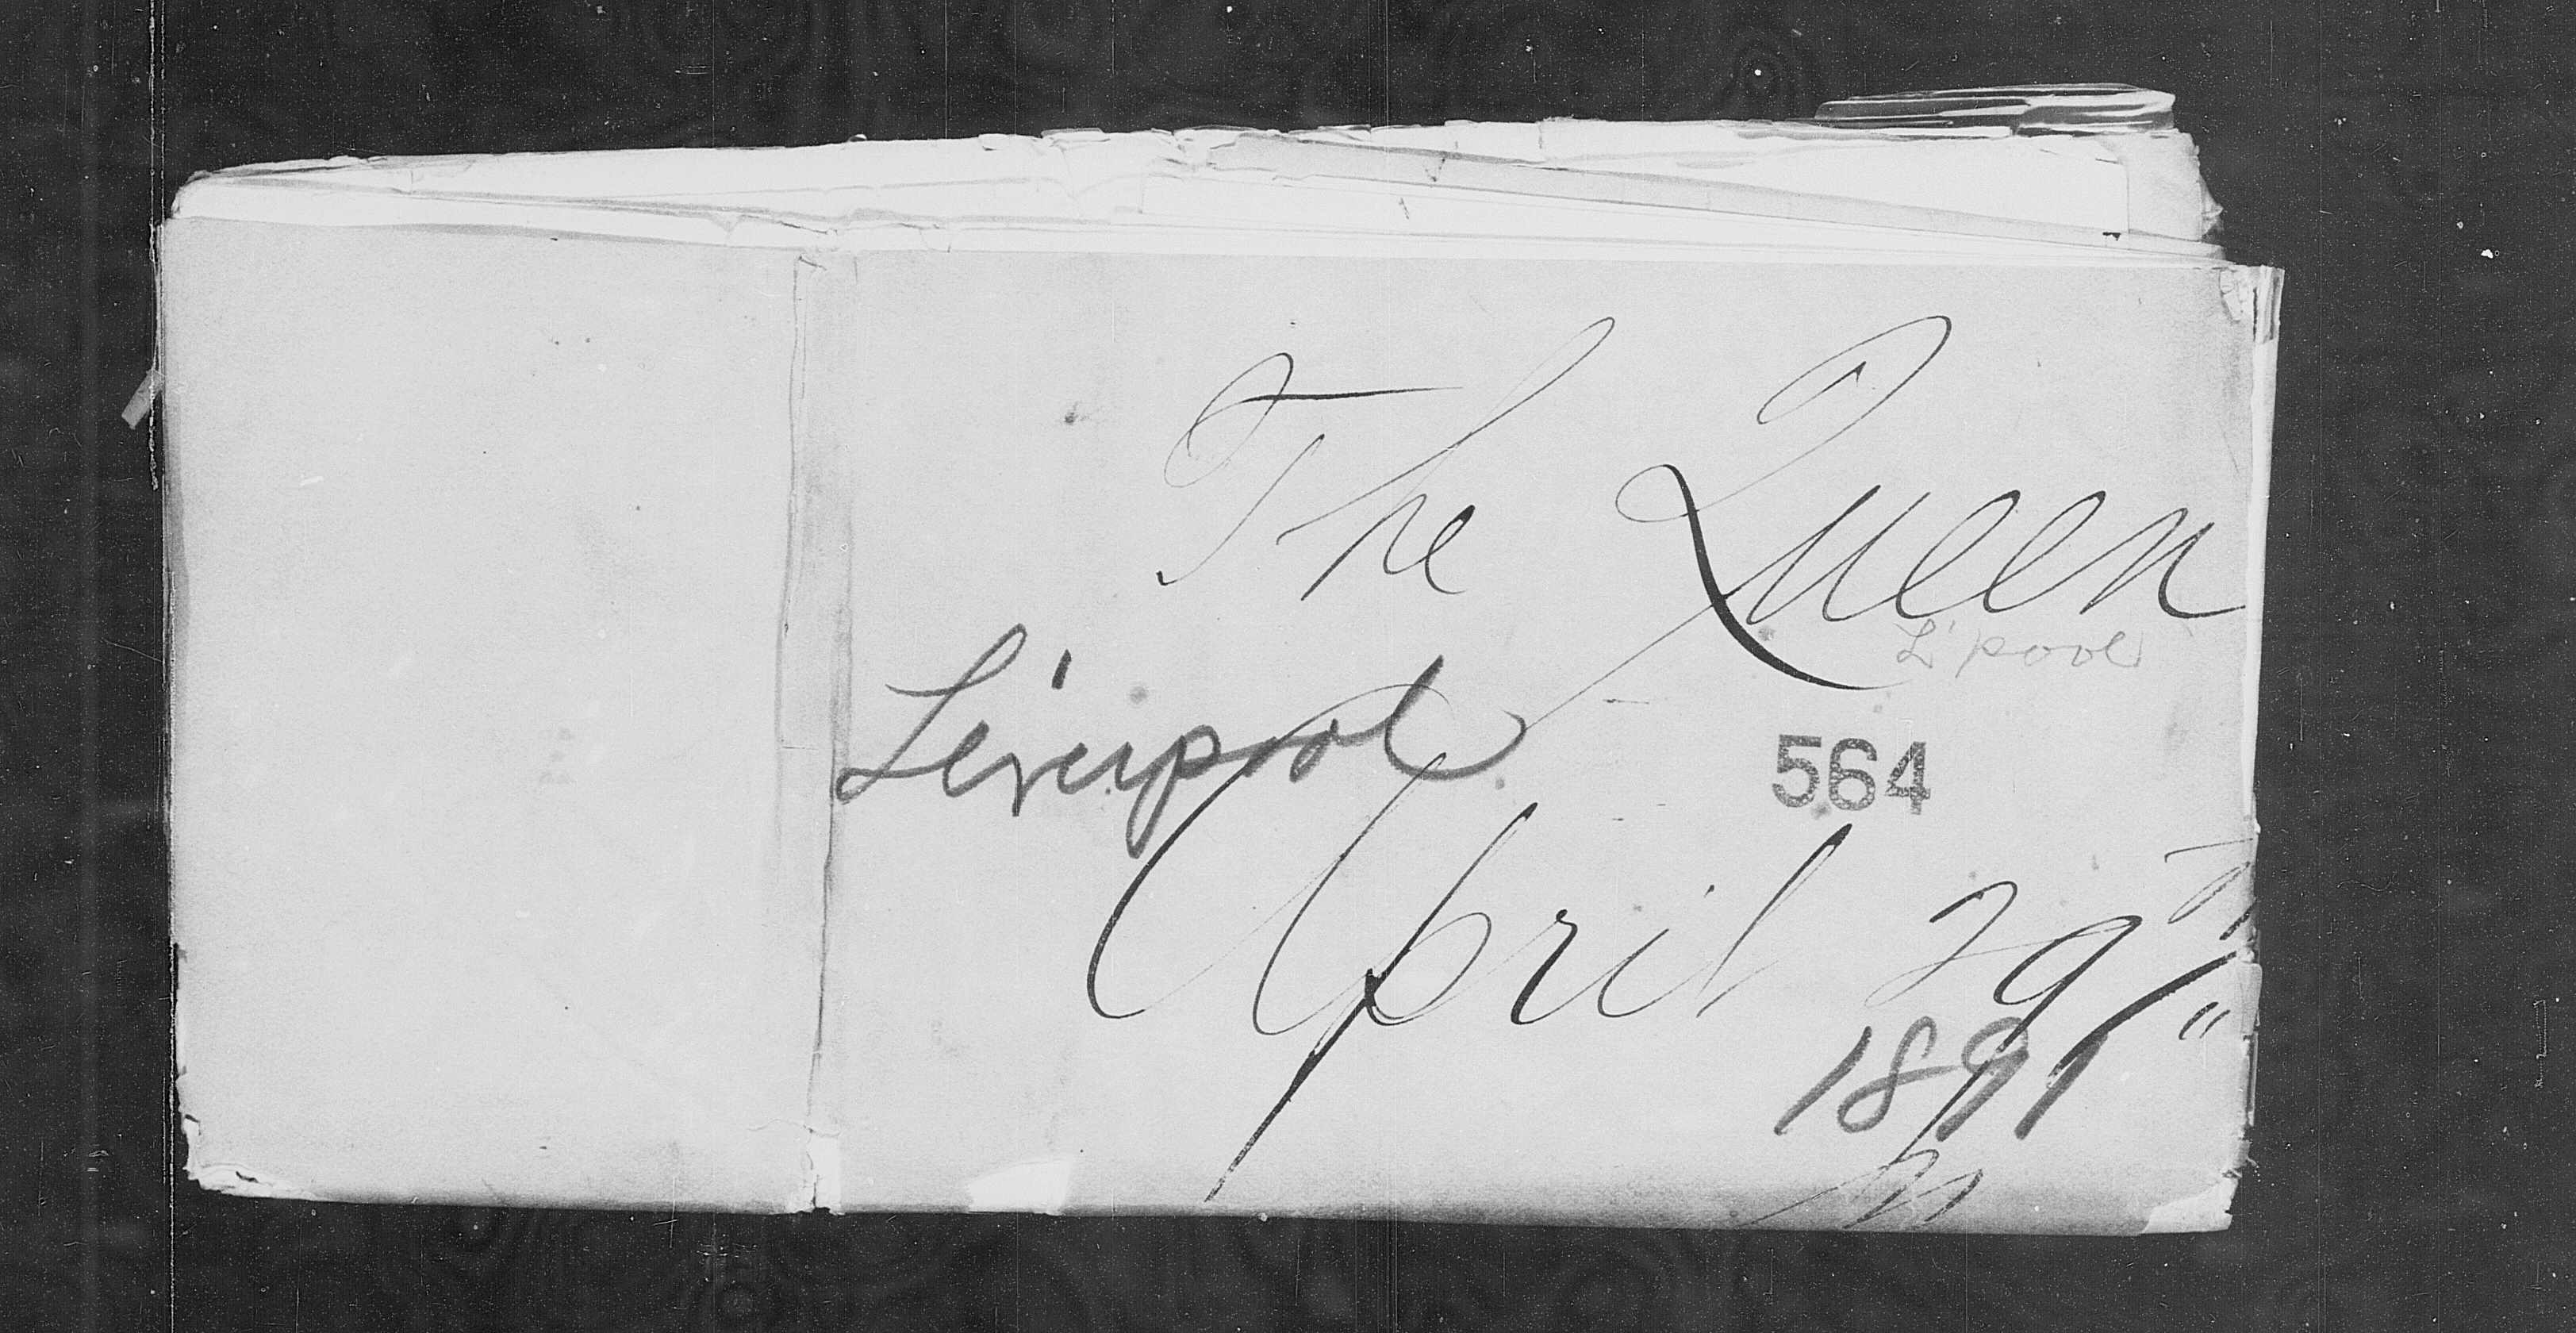 The Queen
L'pool
Liverpool
564
April 29th
1891